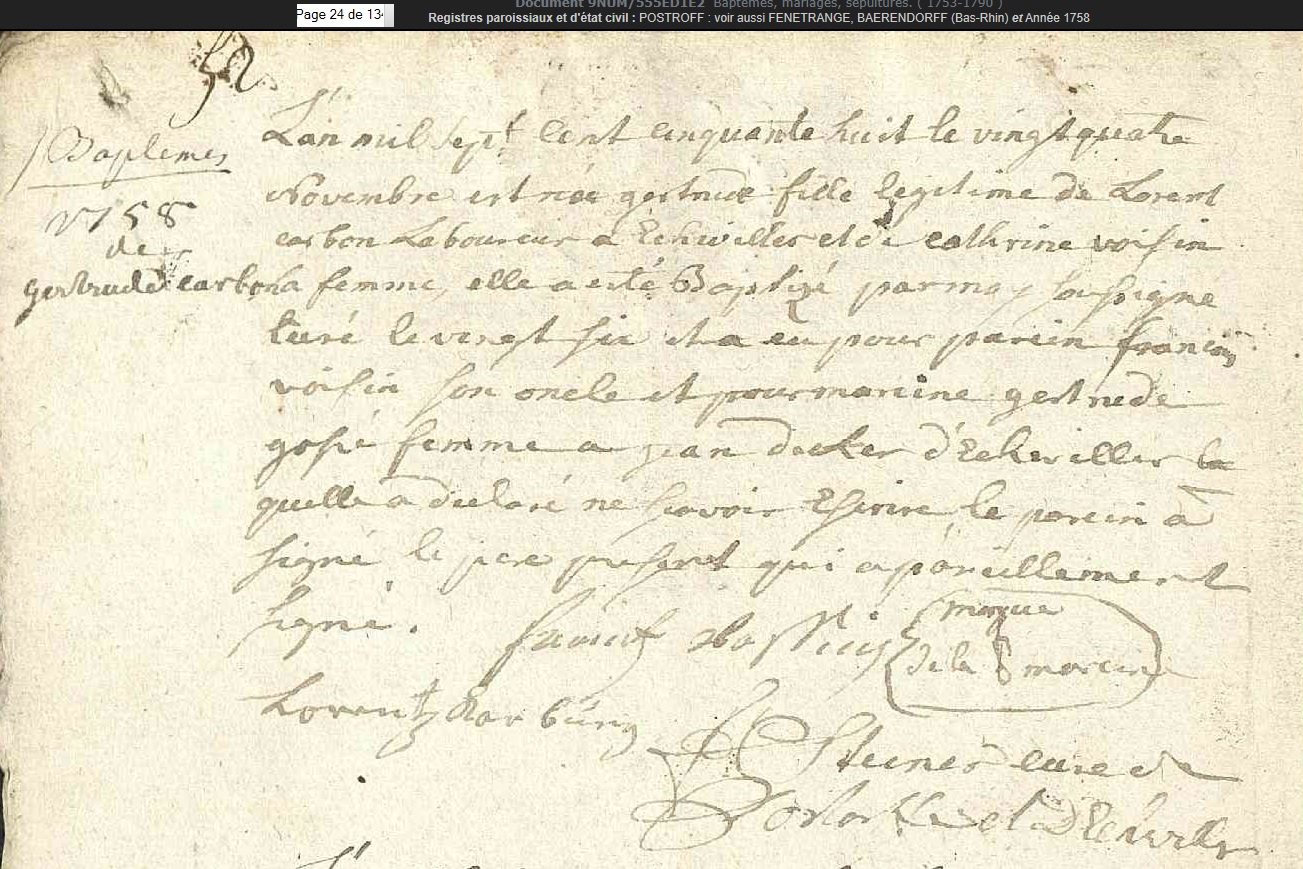 Document 9NUM/555ED1E2 Baptêmes, mariages, sépultures. ( 1753-1790 )
Page 24 de 13
Registres paroissiaux et d'état civil : POSTROFF : voir aussi FENETRANGE, BAERENDORFF (Bas-Rhin) et Année 1758
Baptemes
1758
de
gertrude carbon
L'an mil sept cent cinquante huit le vingt quatre
Novembre est née gertrude fille legitime de Lorent
carbon Laboureur a Echwiller et de cathrine voisin
sa femme, elle a esté Baptizé par moy soussigne
curé le vingt six et a eu pour parein francois
voisin son oncle et pour mareine gertrude
femme a jean decker d'Echwiller la
quelle a declaré ne scavoir Escrire le parein a
signé le pere present qui a pareillement
signé.
marque
de la mareine
Lorentz Karbung
curé de
et d'Echwiller